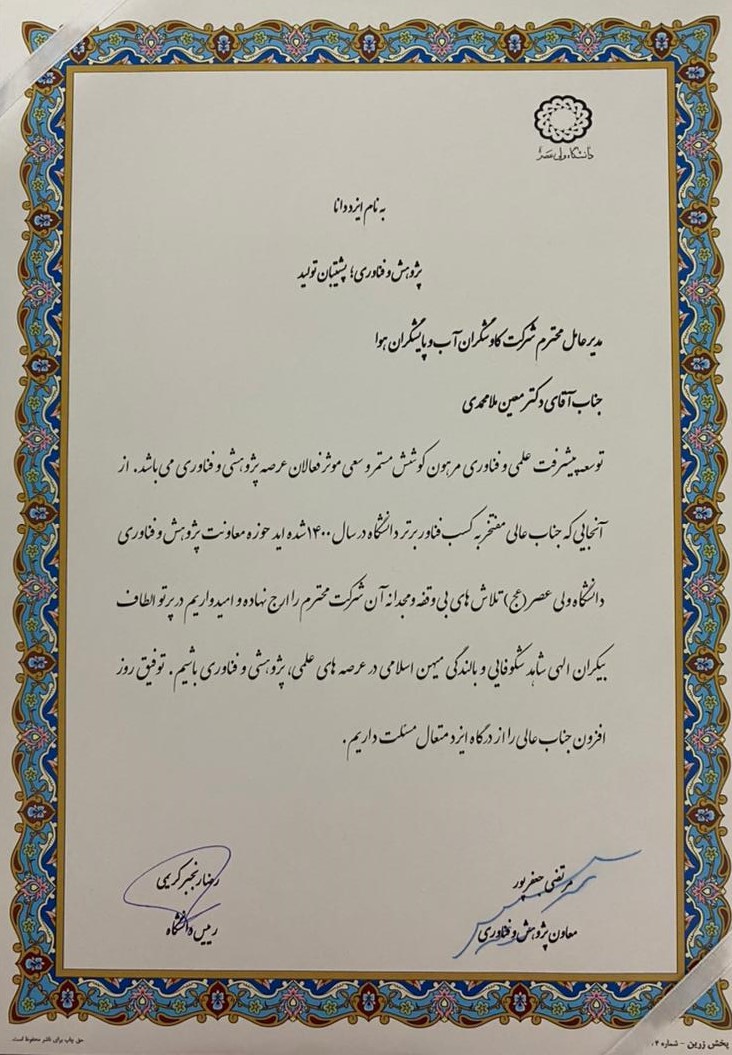 دانشگاه ولی عصر
به نام ایزد دانا
پژوهش و فناوری؛ پشتیبان تولید
مدیر عامل محترم شرکت کاوشگران آب و پایشگران هوا
جناب آقای دکتر معین ملامحمدی
توسعه پیشرفت علمی و فناوری مرهون کوشش مستمر و سعی موثر فعالان عرصه پژوهشی و فناوری می باشد. از
آنجایی که جناب عالی مفتخر به کسب فناور برتر دانشگاه در سال ۱۴۰۰ شده اید حوزه معاونت پژوهش و فناوری
دانشگاه ولی عصر (عج) تلاش های بی وقفه و مجدانه آن شرکت محترم را ارج نهاده و امیدواریم در پرتو الطاف
بیکران الهی شاهد شکوفایی و بالندگی میهن اسلامی در عرصه های علمی، پژوهشی و فناوری باشیم. توفیق روز
افزون جناب عالی را از درگاه ایزد متعال مسئلت داریم.
مرتضی جعفرپور
معاون پژوهش و فناوری
رضا رنجبر کریمی
رییس دانشگاه
پخش زرین - شماره ۴۰
حق چاپ برای ناشر محفوظ است.